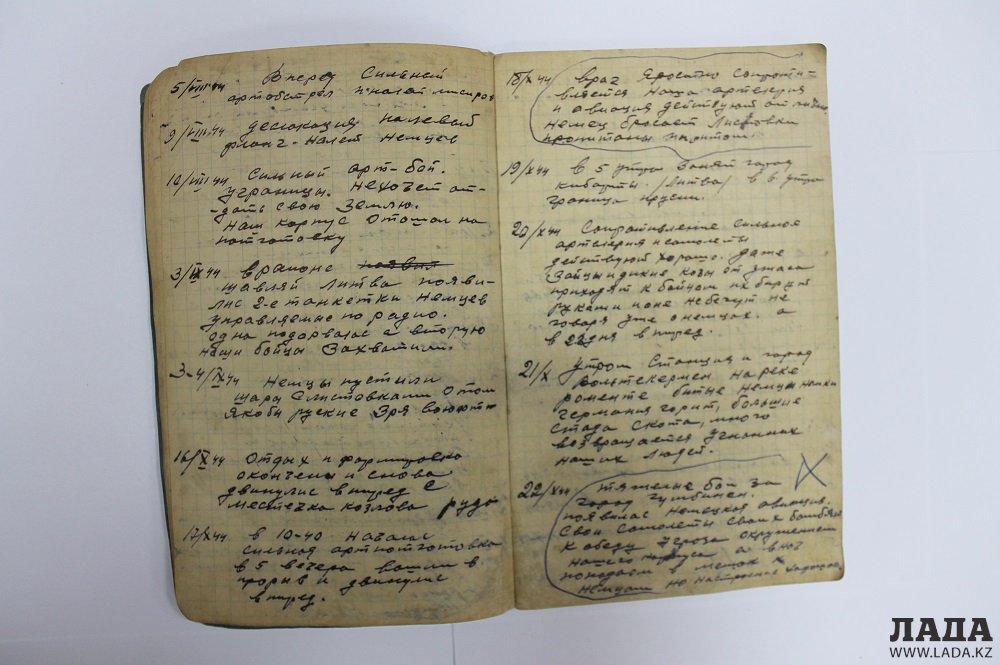 5/VIII 44 Вперед Сильный
артобстрел
9/VIII-44 деслокация на левый
фланг-налет Немцев
10/VIII 44 Сильный арт-бой.
у границы. Нехочет от-
-дать свою Землю.
Наш корпус Отошол на
потготовку
3/IX 44 в раионе
шавлей Литва появи-
лис 2-е танкетки Немцев
управляемые по радио.
одна подорвалас а вторую
наши бойцы Захватили.
3-4/IX 44 Немцы пустили
шары с листовками Отом
якобы руские Зря воюют
16/X 44 Отдых и формировка
окончены и снова
двинулис вперед с
местечка козлова руда
17/X 44 в 10-40 Началас
сильная артпотготовка
в 5 вечера вошли в
прорыв и двинулис
вперед.
18/X 44 враг Яростно сопроти-
вляется Наша артелерия
и авиация действуют отлично
Немец бросает Листовки
пропитаны
19/X 44 в 5 утра Занят город
кибарты. /Литва/ в 6 утра
граница прусии.
20/X 44 Сопротивление сильное
артелерия и самолеты
действуют хорошо. даже
Зайцы и дикие козы от ужаса
приходят к бойцам их берут
руками и оне не бегут не
говоря уже о немцах. а
в 22 дня вперед.
21/X утром Станция и город
вольтекермен На реке
роменте битые Немцы
германия горит, большие
стада Скота, много
возвращается угнанных
наших людей.
22/X 44 тяжелые бой за
город гумбинен.
появилас Немецкая авиация.
Свои Самолеты своих бомбят
К обеду угроза окружения
нашего корпуса а в ноч
попадаем в мешок к
немцам но настроение хорошое
ЛАДА
WWW.LADA.KZ